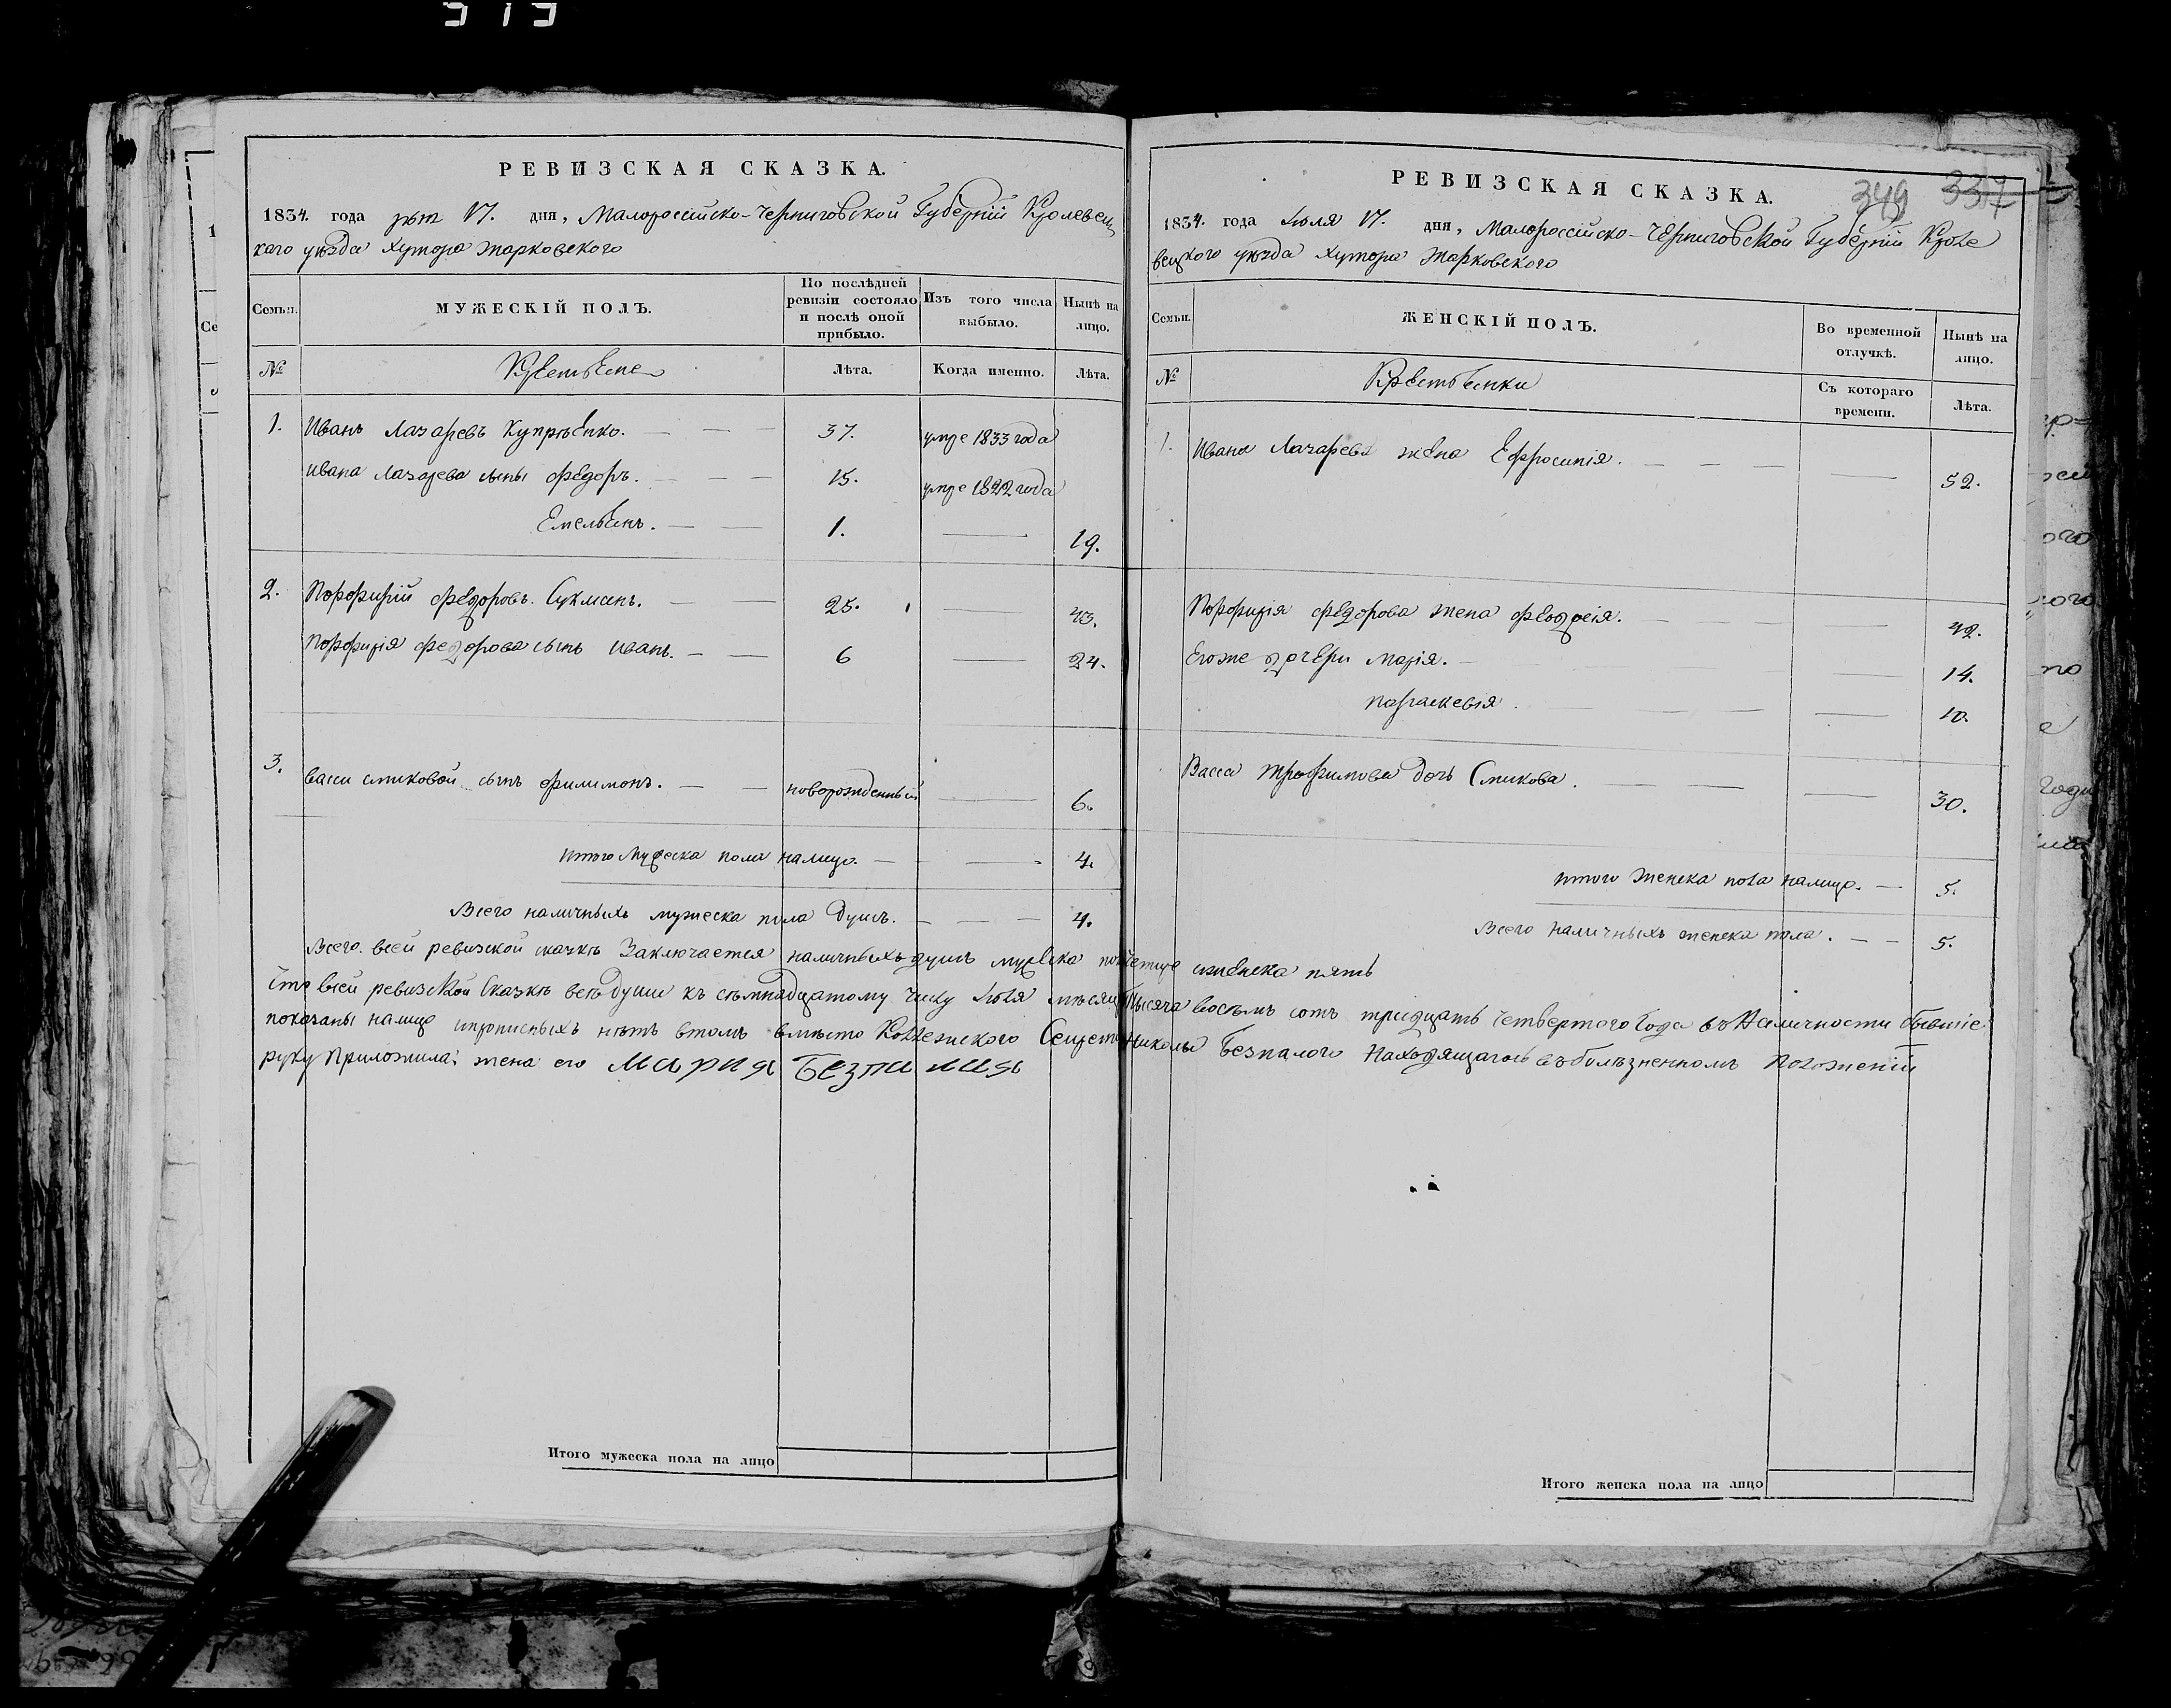 РЕВИЗСКАЯ СКАЗКА.
1834. года 17. дня, Малороссійско-Черниговской Губерніи Кролевец
кого уѣзда Хутора Жарковского
Семьи.
МУЖЕСКІЙ ПОЛЪ.
По послѣдней ревизіи состояло и послѣ оной прибыло.
Изъ того числа выбыло.
Нынѣ на лицо.
№
Крестьяне
Лѣта.
Когда именно.
Лѣта.
1. Иванъ Лазаревъ Купрѣенко. 37. умре 1833 года
Ивана Лазарева сыны Федоръ. 15. умре 1822 года
Емельянъ. 1. 19.
2. Порфирій Федоровъ. Сукманъ. 25. 43.
Порфирія Федорова сынъ Иванъ. 6 24.
3. Васси Смиковой сынъ Филимонъ. новорожденный 6.
Итого Мужеска пола налицо. 4.
Всего наличныхъ мужеска пола душъ. 4.
РЕВИЗСКАЯ СКАЗКА.
349 337
1834. года Іюля 17. дня, Малороссійско-Черниговской Губерніи Кроле
вецкого уѣзда Хутора Жарковского
Семьи.
ЖЕНСКІЙ ПОЛЪ.
Во временной отлучкѣ.
Нынѣ на лицо.
№
Крестьянки
Съ котораго времени.
Лѣта.
1. Ивана Лазарева жена Ефросинія. 52.
Порфирія Федорова жена Феодосія. 42.
Егоже дочери Марія. 14.
Параскевія. 10.
Васса Трофимова дочь Смикова. 30.
Итого женска пола налицо. 5.
Всего наличныхъ женска пола. 5.
Всего всей ревизской сказкѣ Заключается наличныхъ душъ мужска четыре ижѣнска пять
Что всей ревизской Сказкѣ всѣ души къ сѣмнадцатому числу Іюля мѣсяца тысяча восѣмъ сотъ тридцать четвертого Года в наличности бывшіе
показаны налицо ипрописныхъ нѣтъ втомъ вмѣсто Коллежского Николы Безпалого находящагось въ болѣзненномъ Положеніи
руку Приложила; жена его Мария Безпалая
Итого мужеска пола на лицо
Итого женска пола на лицо